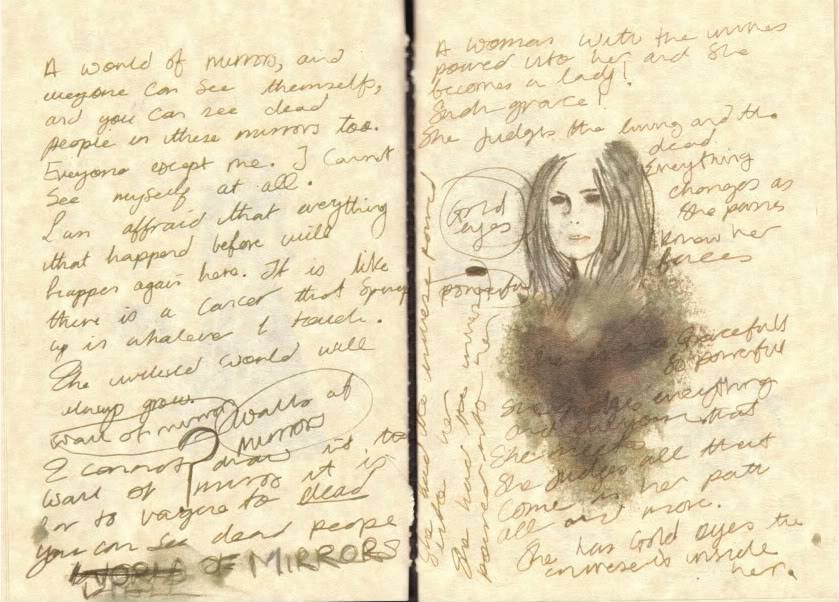 A world of mirrors, and
everyone can see themselfs,
and you can see dead
people in these mirrors too.
Everyone except me. I cannot
see myself at all.
I am affraid that everything
that happend before will
happen again here. It is like
there is a cancer that
up is whatever I touch.
The world will
always grow.
wall of mirrors
Walls of
mirrors
I cannot draw it
wall of mirrors it is
to dead
you can see dead people
WORLD OF MIRRORS
A woman with the
poured into her and she
becomes a lady!
Such grace!
She Judges the living and the
dead.
Everything
changes as
she passes
know her
Gold
eyes
powerful
She had the
into her
She had the
poured into her
She is so Gracefull
so powerful
She judges everything
and everyone that
She
She Judges all that
come in her path
all and more.
She has Gold eyes the
is inside
her.